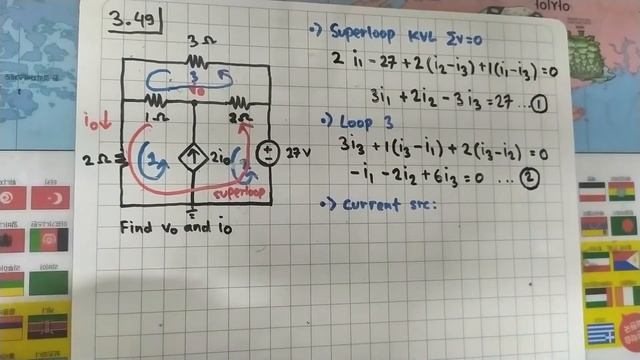 3.49
3 Ω
3
v₀
1Ω
2Ω
i₀ ↓
2 Ω
1
2i₀
2
+
−
27 V
superloop
Find v₀ and i₀
·) Superloop KVL Σv=0
2 i₁ - 27 + 2(i₂-i₃) + 1(i₁-i₃) = 0
3i₁ + 2i₂ - 3i₃ = 27 ... ①
·) Loop 3
3i₃ + 1(i₃-i₁) + 2(i₃-i₂) = 0
-i₁ - 2i₂ + 6i₃ = 0 ... ②
·) current src: